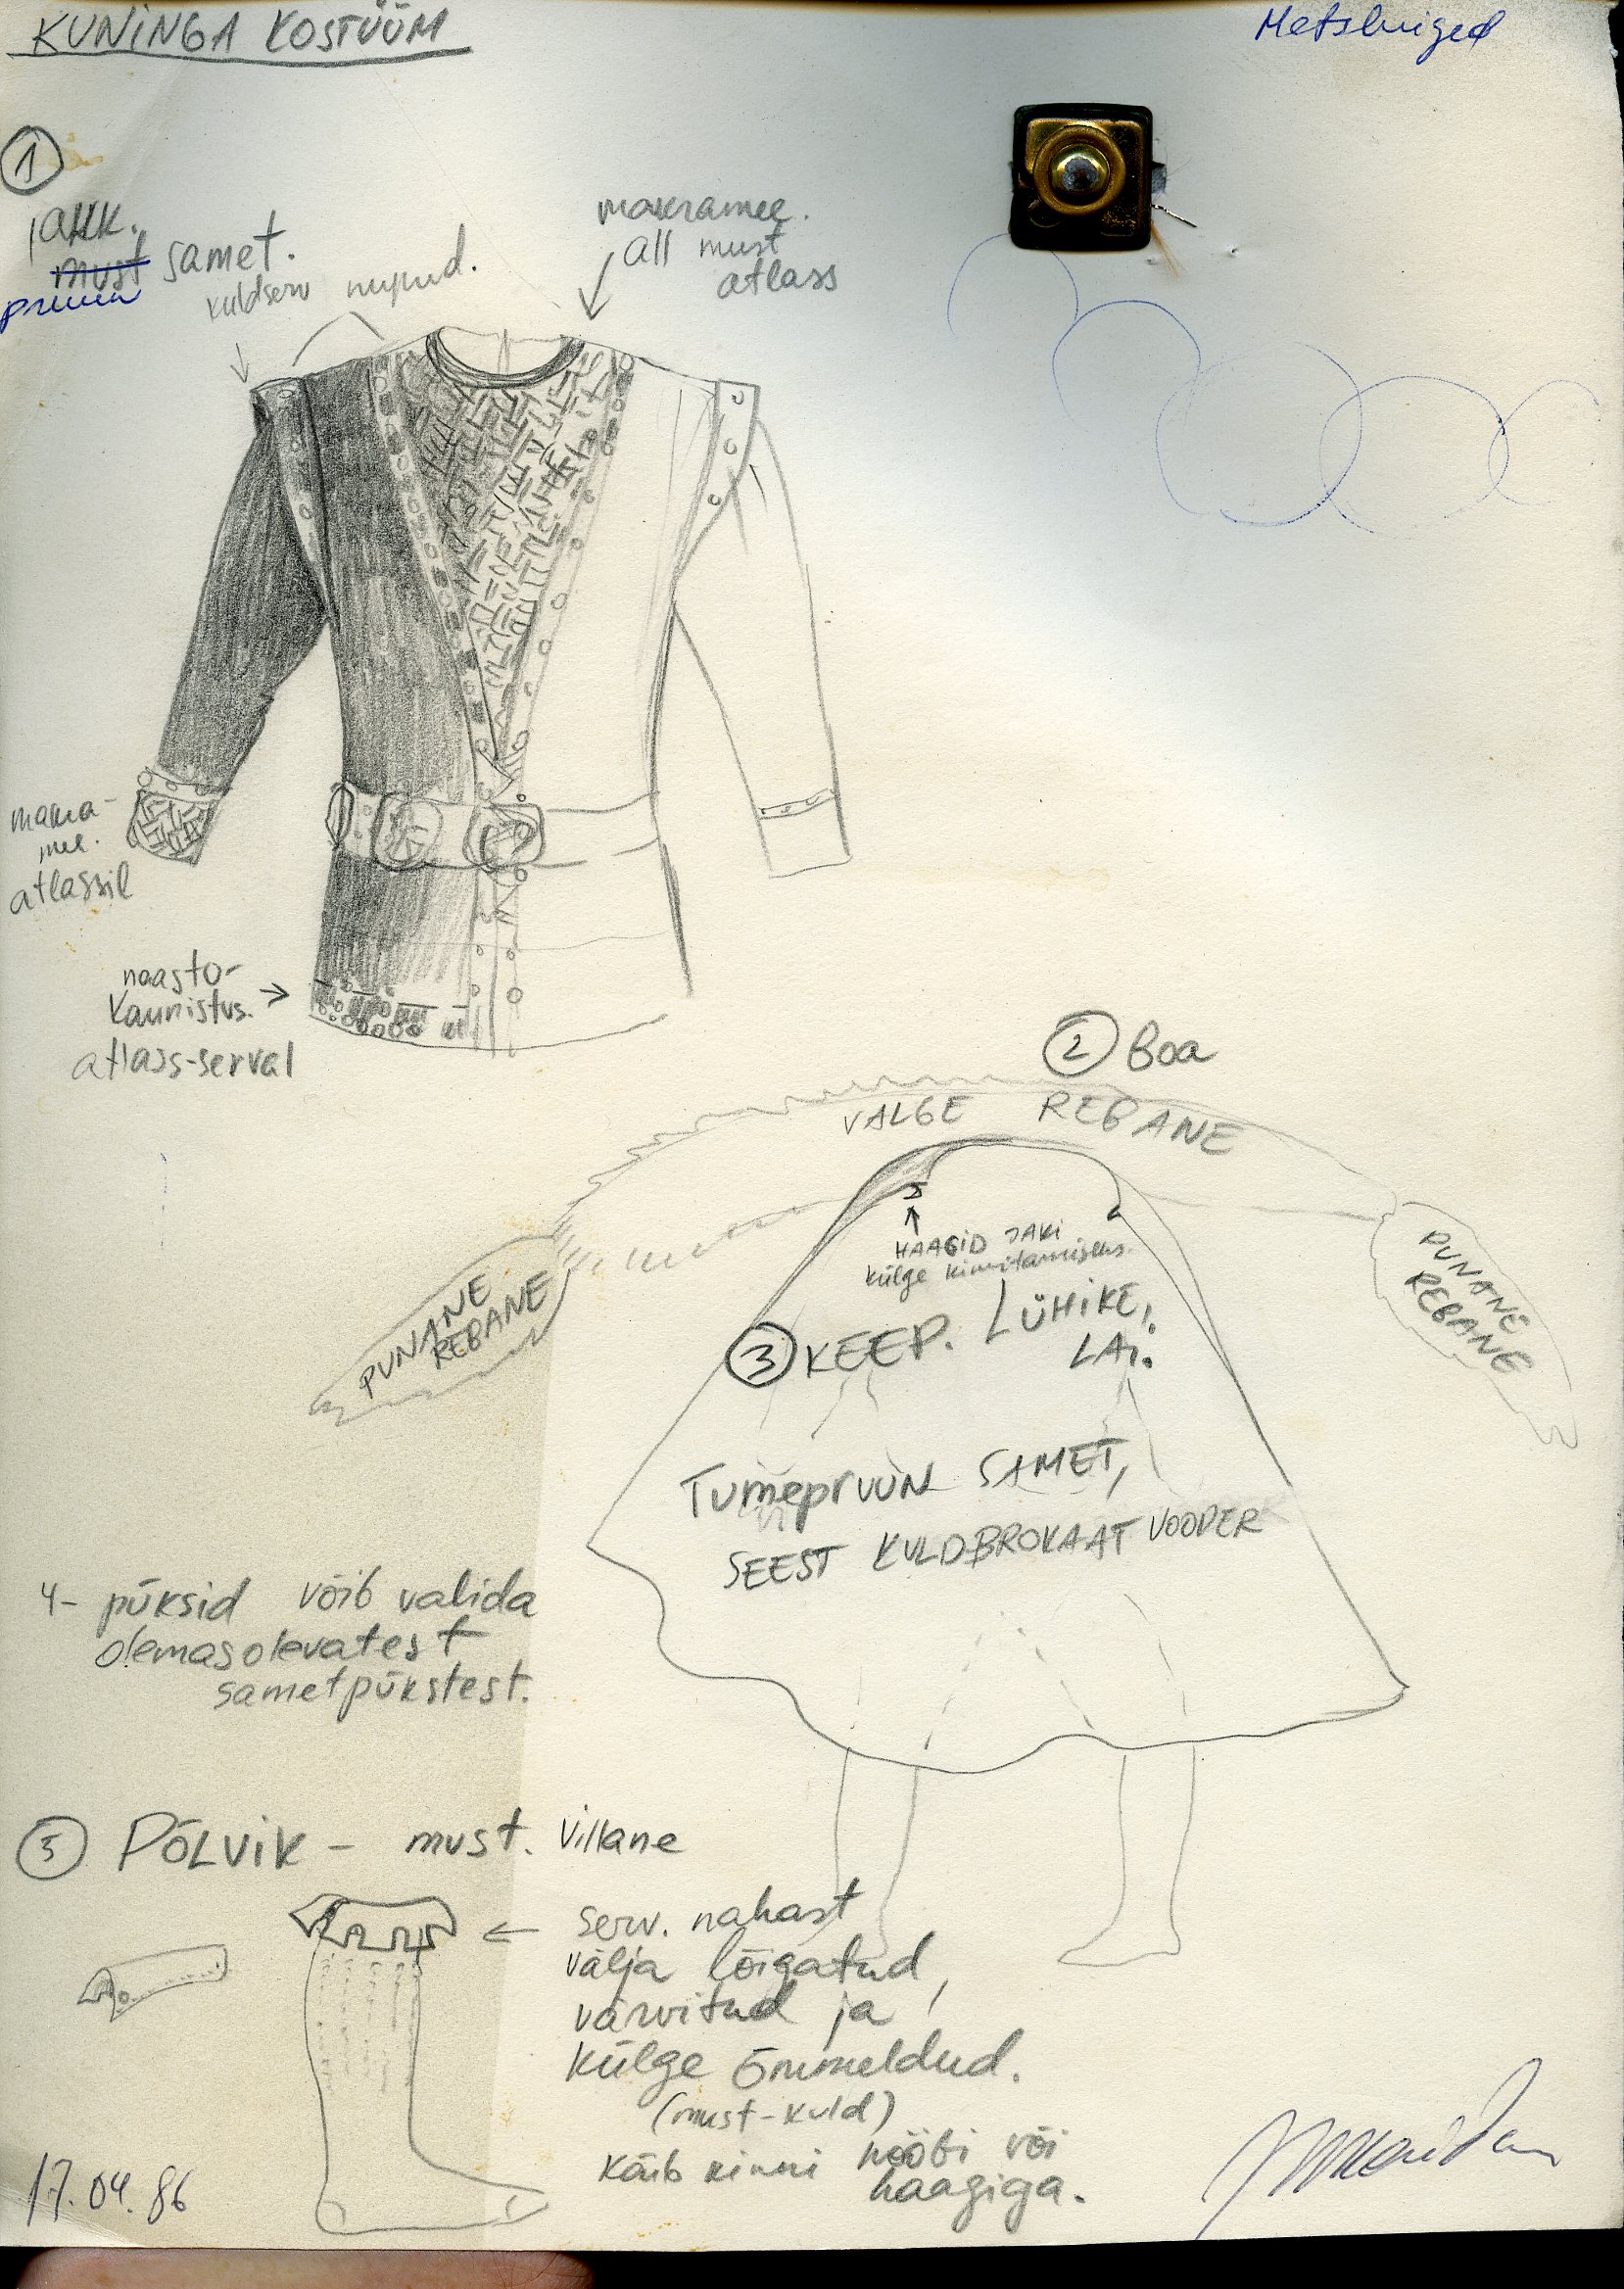 KUNINGA KOSTÜÜM
Metsluiged
1
JAKK.
must samet.
pruun
kuldserv nupud.
makramee.
all must
atlass
makra-
mee.
atlassil
naasto-
kaunistus.
atlass-serval
2 Boa
VALGE REBANE
PUNANE
REBANE
PUNANE
REBANE
HAAGID JAKI
külge kinnitamiseks.
3 KEEP. LÜHIKE,
LAI.
TUMEPRUUN SAMET,
SEEST KULDBROKAAT VOODER
4- püksid võib valida
olemasolevatest
sametpükstest.
5 PÕLVIK - must. Villane
serv. nahast
välja lõigatud,
värvitud ja
külge õmmeldud.
(must-kuld)
Käib kinni nööbi või
haagiga.
17.04.86